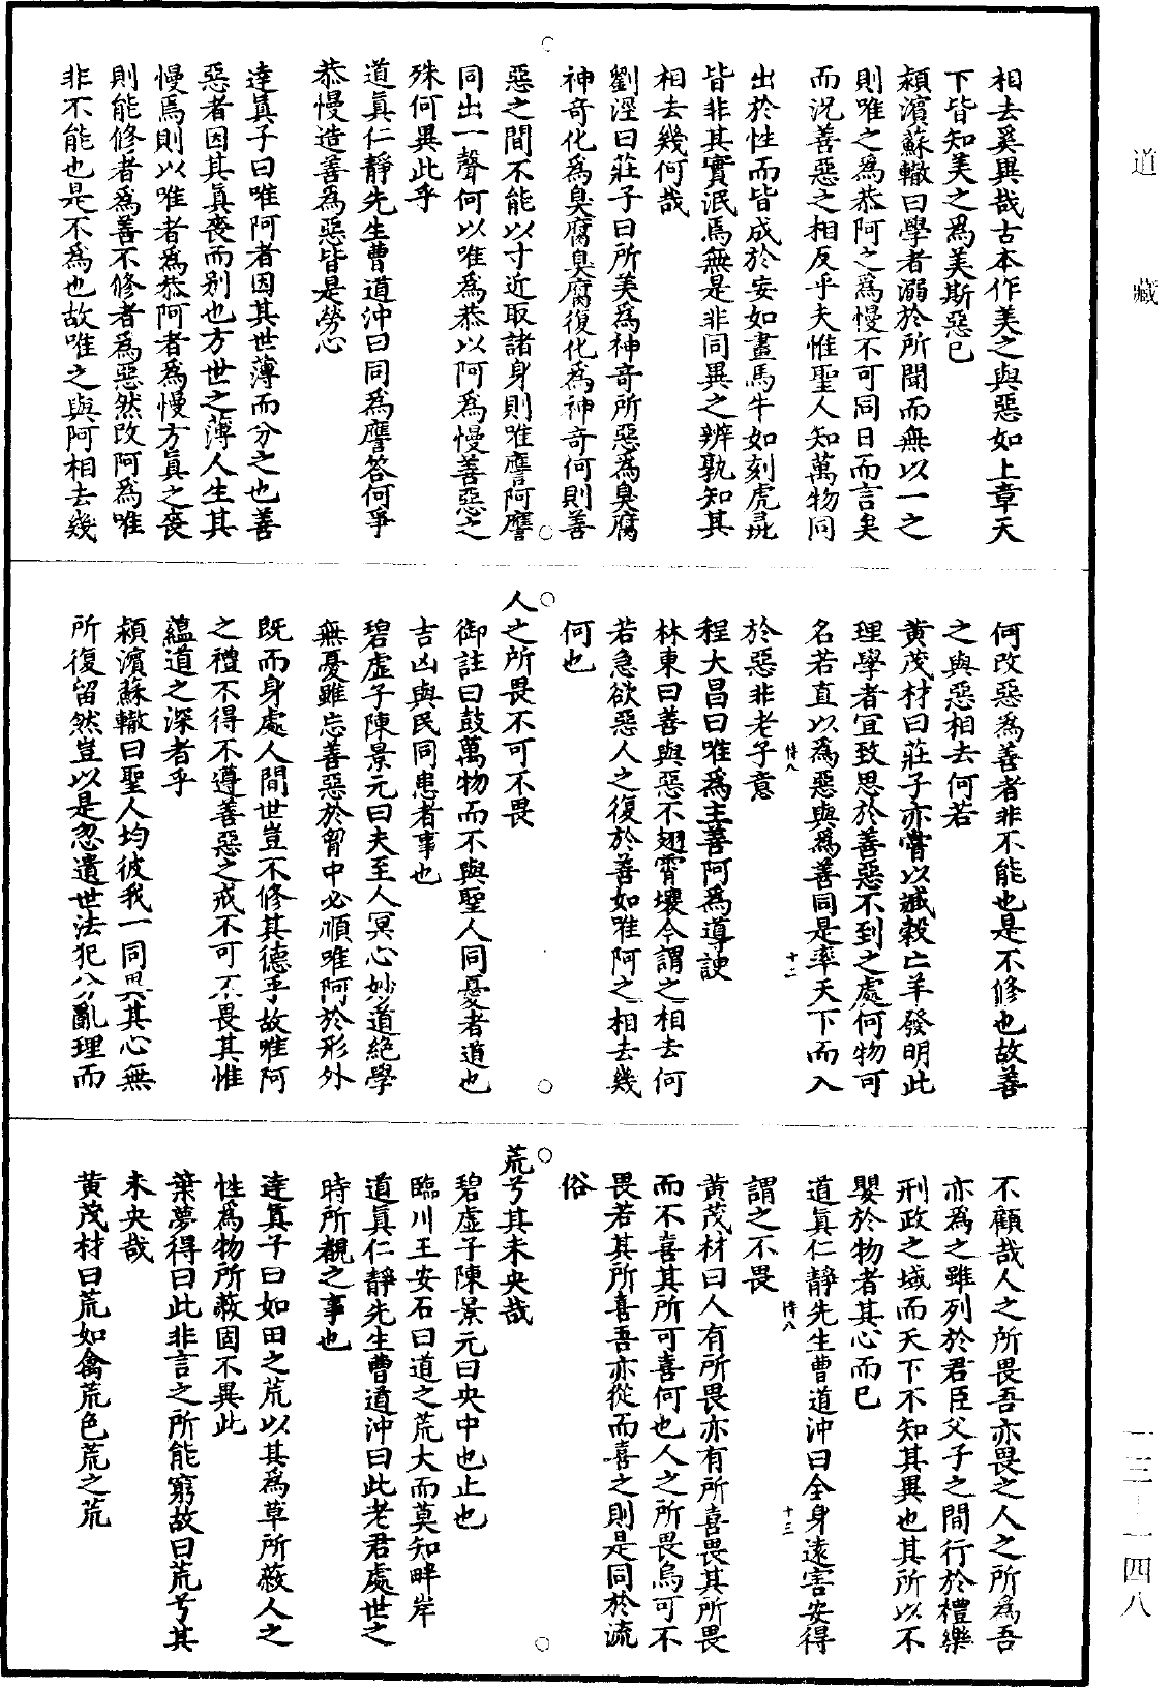 道藏
相去奚異哉古本作美之與惡如上章天
下皆知美之為美斯惡已
潁濱蘇轍曰學者溺於所聞而無以一之
則唯之為恭阿之為慢不可同日而言矣
而況善惡之相反乎夫惟聖人知萬物同
出於性而皆成於妄如畫馬牛如刻虎彘
皆非其實泯焉無是非同異之辨孰知其
相去幾何哉
劉涇曰莊子曰所美為神奇所惡為臭腐
神奇化為臭腐臭腐復化為神奇何則善
惡之間不能以寸近取諸身則唯譍阿譍
同出一聲何以唯為恭以阿為慢善惡之
殊何異此乎
道真仁靜先生曹道沖曰同為譍答何爭
恭慢造善為惡皆是勞心
達真子曰唯阿者因其世薄而分之也善
惡者因其真喪而別也方世之薄人生其
慢焉則以唯者為恭阿者為慢方真之喪
則能修者為善不修者為惡然改阿為唯
非不能也是不為也故唯之與阿相去幾
何改惡為善者非不能也是不修也故善
之與惡相去何若
黃茂材曰莊子亦嘗以臧穀亡羊發明此
理學者宜致思於善惡不到之處何物可
名若直以為惡與為善同是率天下而入
於惡非老子意
悼八
十二
程大昌曰唯為主善阿為導諛
林東曰善與惡不翅霄壤今謂之相去何
若急欲惡人之復於善如唯阿之相去幾
何也
人之所畏不可不畏
御註曰鼓萬物而不與聖人同憂者道也
吉凶與民同患者事也
碧虛子陳景元曰夫至人冥心妙道絕學
無憂雖忘善惡於胷中必順唯阿於形外
既而身處人間世豈不修其德乎故唯阿
之禮不得不遵善惡之戒不可不畏其惟
蘊道之深者乎
潁濱蘇轍曰聖人均彼我一同異其心無
所復留然豈以是忽遺世法犯分亂理而
不顧哉人之所畏吾亦畏之人之所為吾
亦為之雖列於君臣父子之間行於禮樂
刑政之域而天下不知其異也其所以不
嬰於物者其心而已
道真仁靜先生曹道沖曰全身遠害安得
謂之不畏
悼八
十三
黃茂材曰人有所畏亦有所喜畏其所畏
而不喜其所可喜何也人之所畏烏可不
畏若其所喜吾亦從而喜之則是同於流
俗
荒兮其未央哉
碧虛子陳景元曰央中也止也
臨川王安石曰道之荒大而莫知畔岸
道真仁靜先生曹道沖曰此老君處世之
時所觀之事也
達真子曰如田之荒以其為草所蔽人之
性為物所蔽固不異此
葉夢得曰此非言之所能窮故曰荒兮其
未央哉
黃茂材曰荒如禽荒色荒之荒
一三—一四八